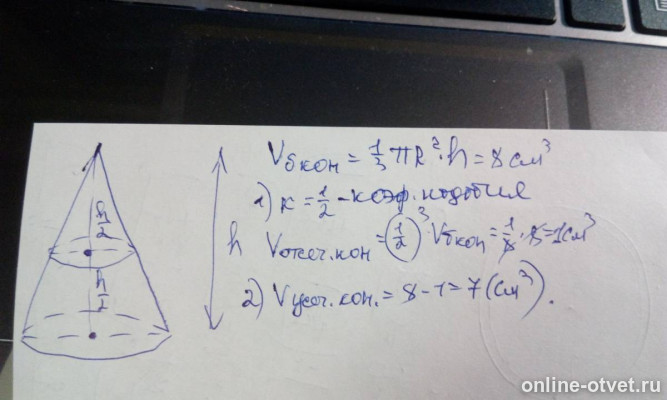 Vбкон = 1/3 πR²·h = 8 см³
1) к = 1/2 - коэф. подобия
h/2
h
Vотсеч.кон = (1/2)³ Vбкон = 1/8 · 8 = 1 см³
h/2
2) Vусеч.кон. = 8 - 1 = 7 (см³).
online-otvet.ru